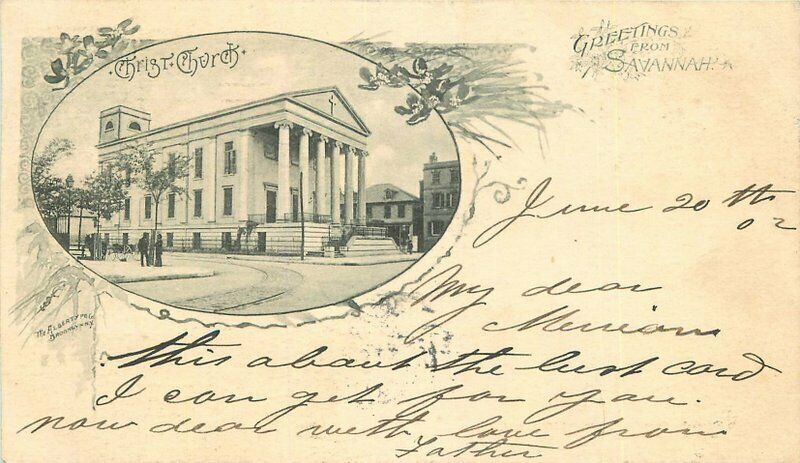 Christ Church
GREETINGS
FROM
SAVANNAH.
The Albertype Co.
Brooklyn N.Y.
June 20th
02
My dear
Merriam
this about the last card
I can get for you.
now dear with love from
Father